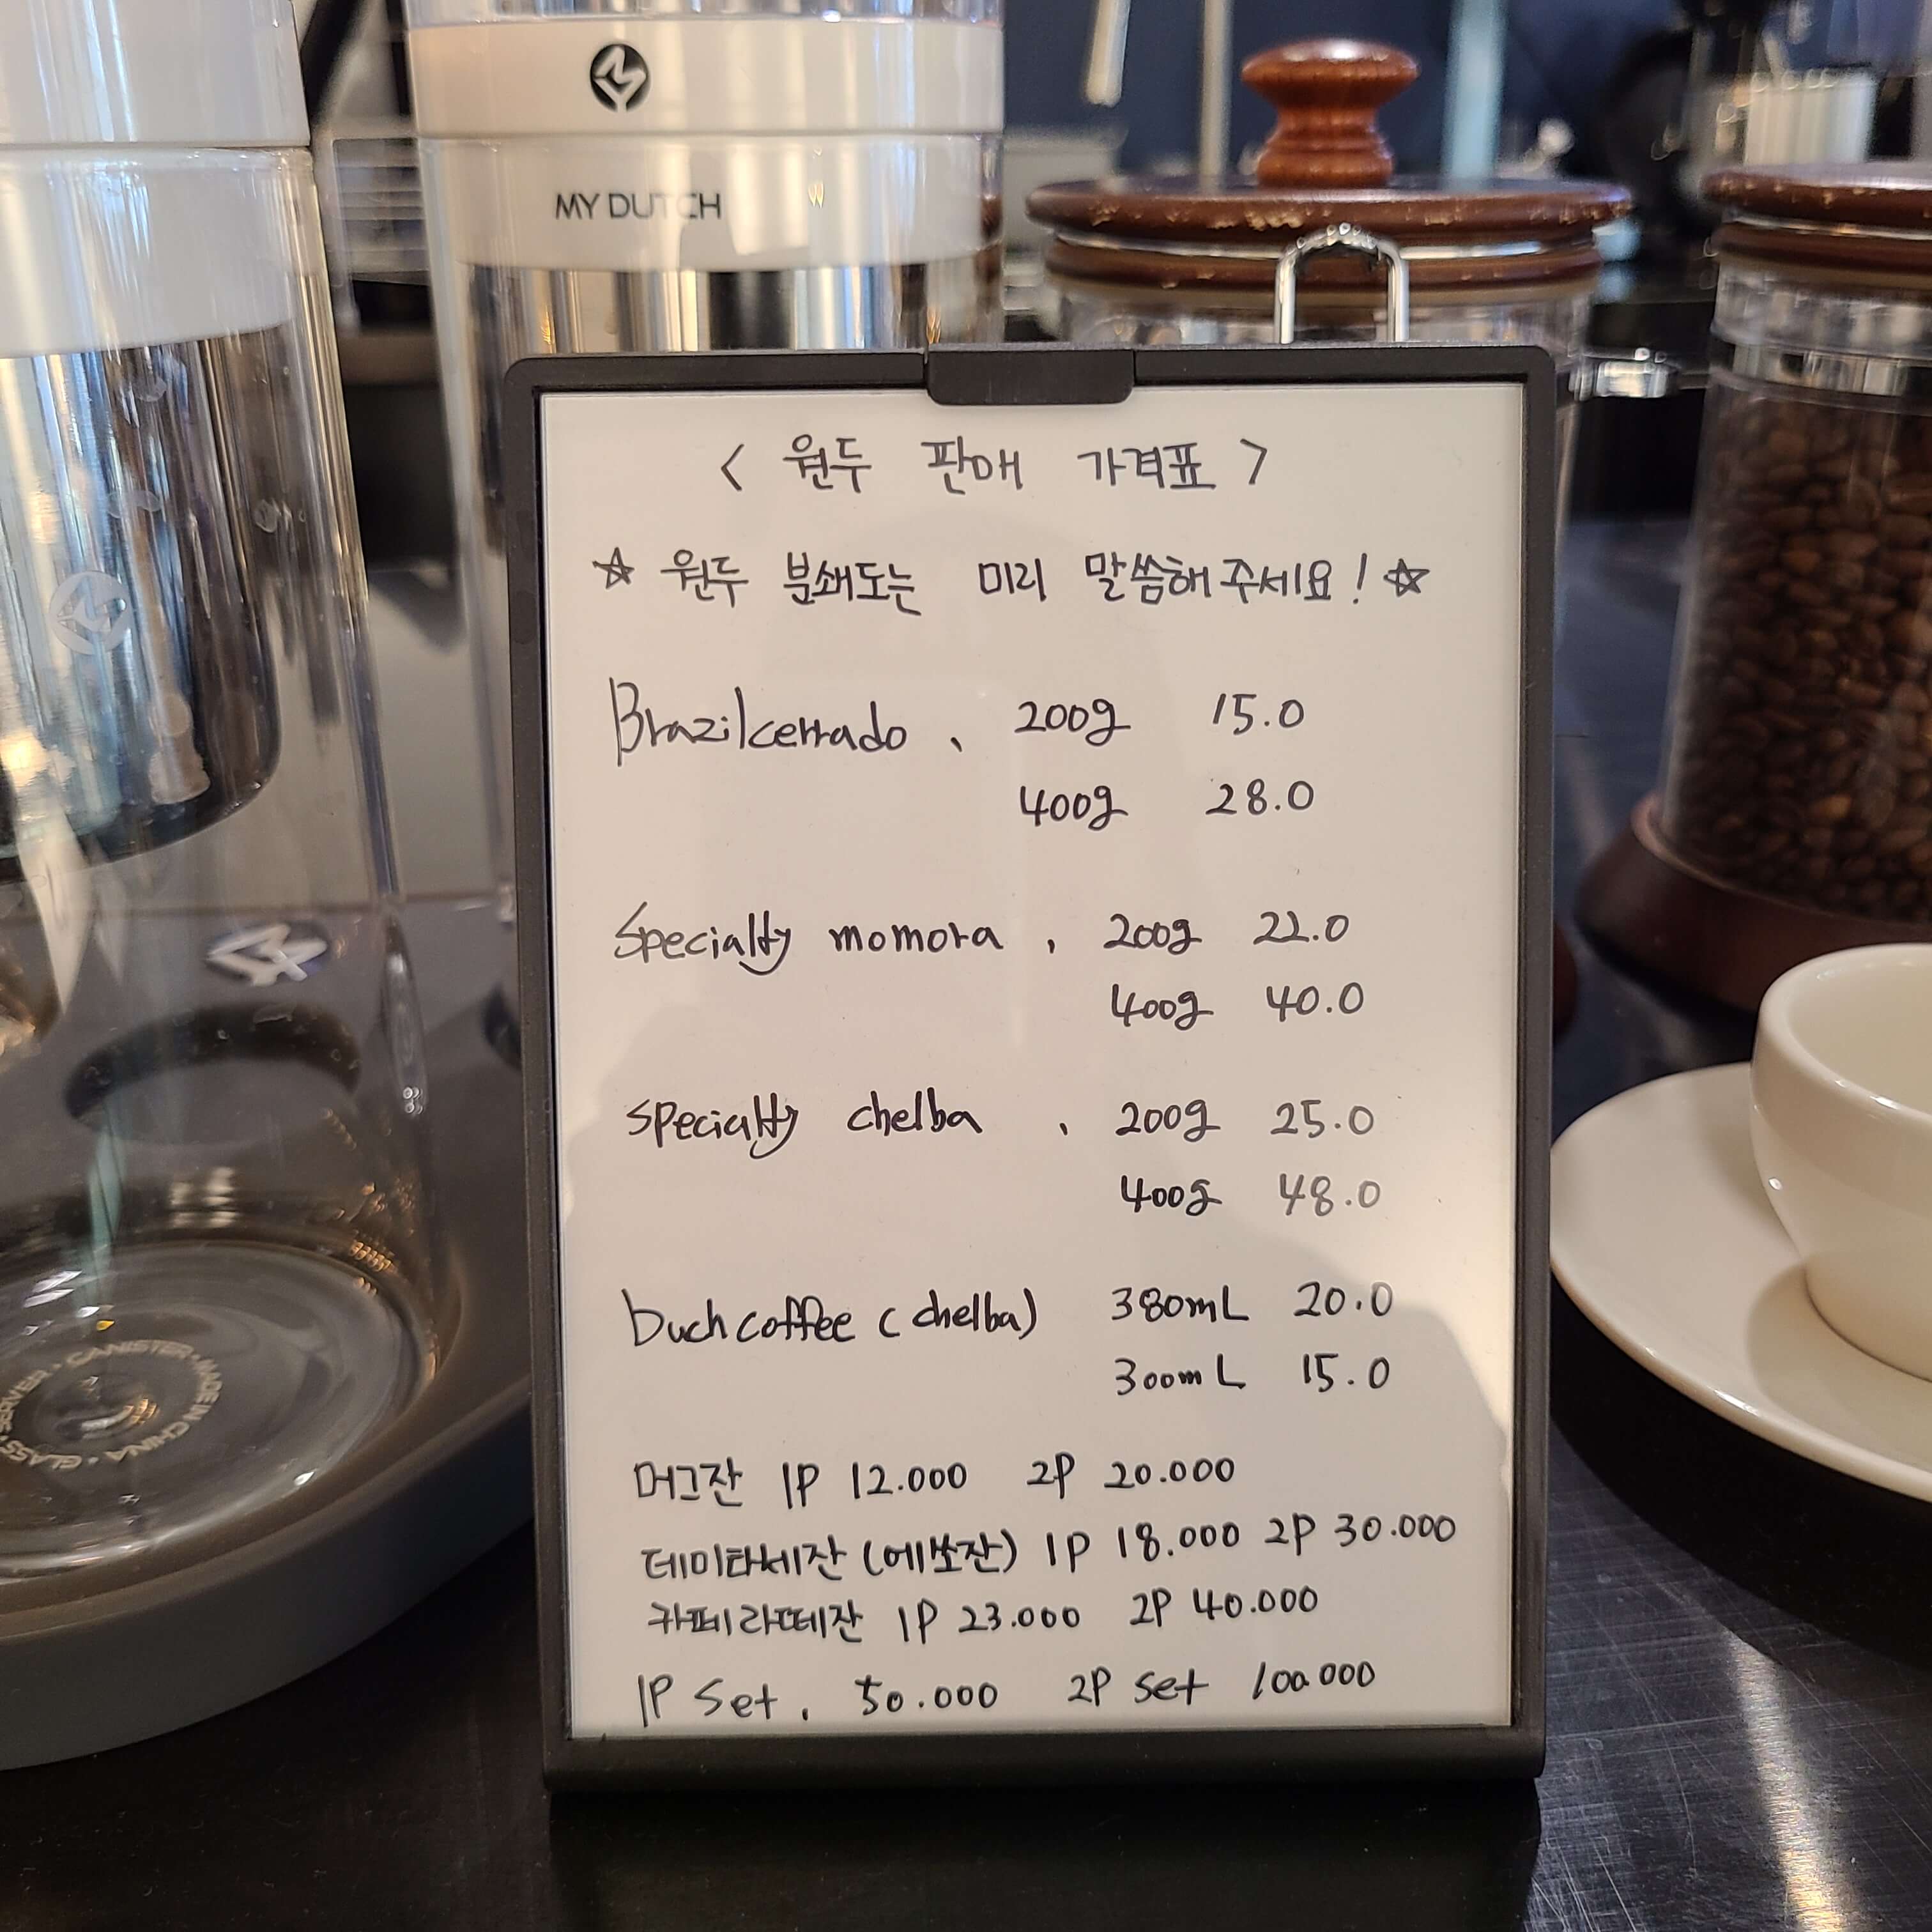 MY DUTCH
< 원두 판매 가격표 >
☆ 원두 분쇄도는 미리 말씀해주세요! ☆
Brazilcerrado, 200g 15.0
400g 28.0
Specialty momora, 200g 22.0
400g 40.0
specialty chelba, 200g 25.0
400g 48.0
Duch coffee (chelba) 380mL 20.0
300mL 15.0
머그잔 1P 12.000 2P 20.000
데미타세잔 (에쏘잔) 1P 18.000 2P 30.000
카페라떼잔 1P 23.000 2P 40.000
1P Set, 50.000 2P Set 100.000
CANISTER · MADE IN CHINA · GLASS